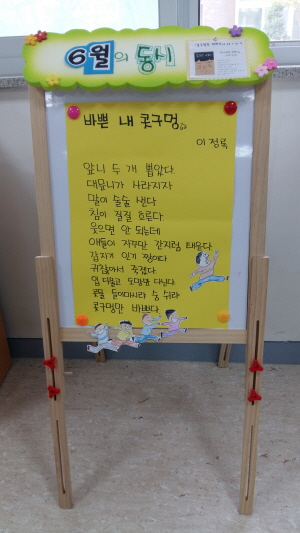 6월의 동시
바쁜 내 콧구멍
이정록
앞니 두 개 뽑았다.
대문니가 사라지자
말이 술술 샌다
침이 질질 흐른다
웃으면 안 되는데
애들이 자꾸만 간지럼 태운다.
갑자기 인기 짱이다
귀찮아서 죽겠다.
입 다물고 도망만 다닌다.
콧물 들이마시랴 숨 쉬랴
콧구멍만 바쁘다.